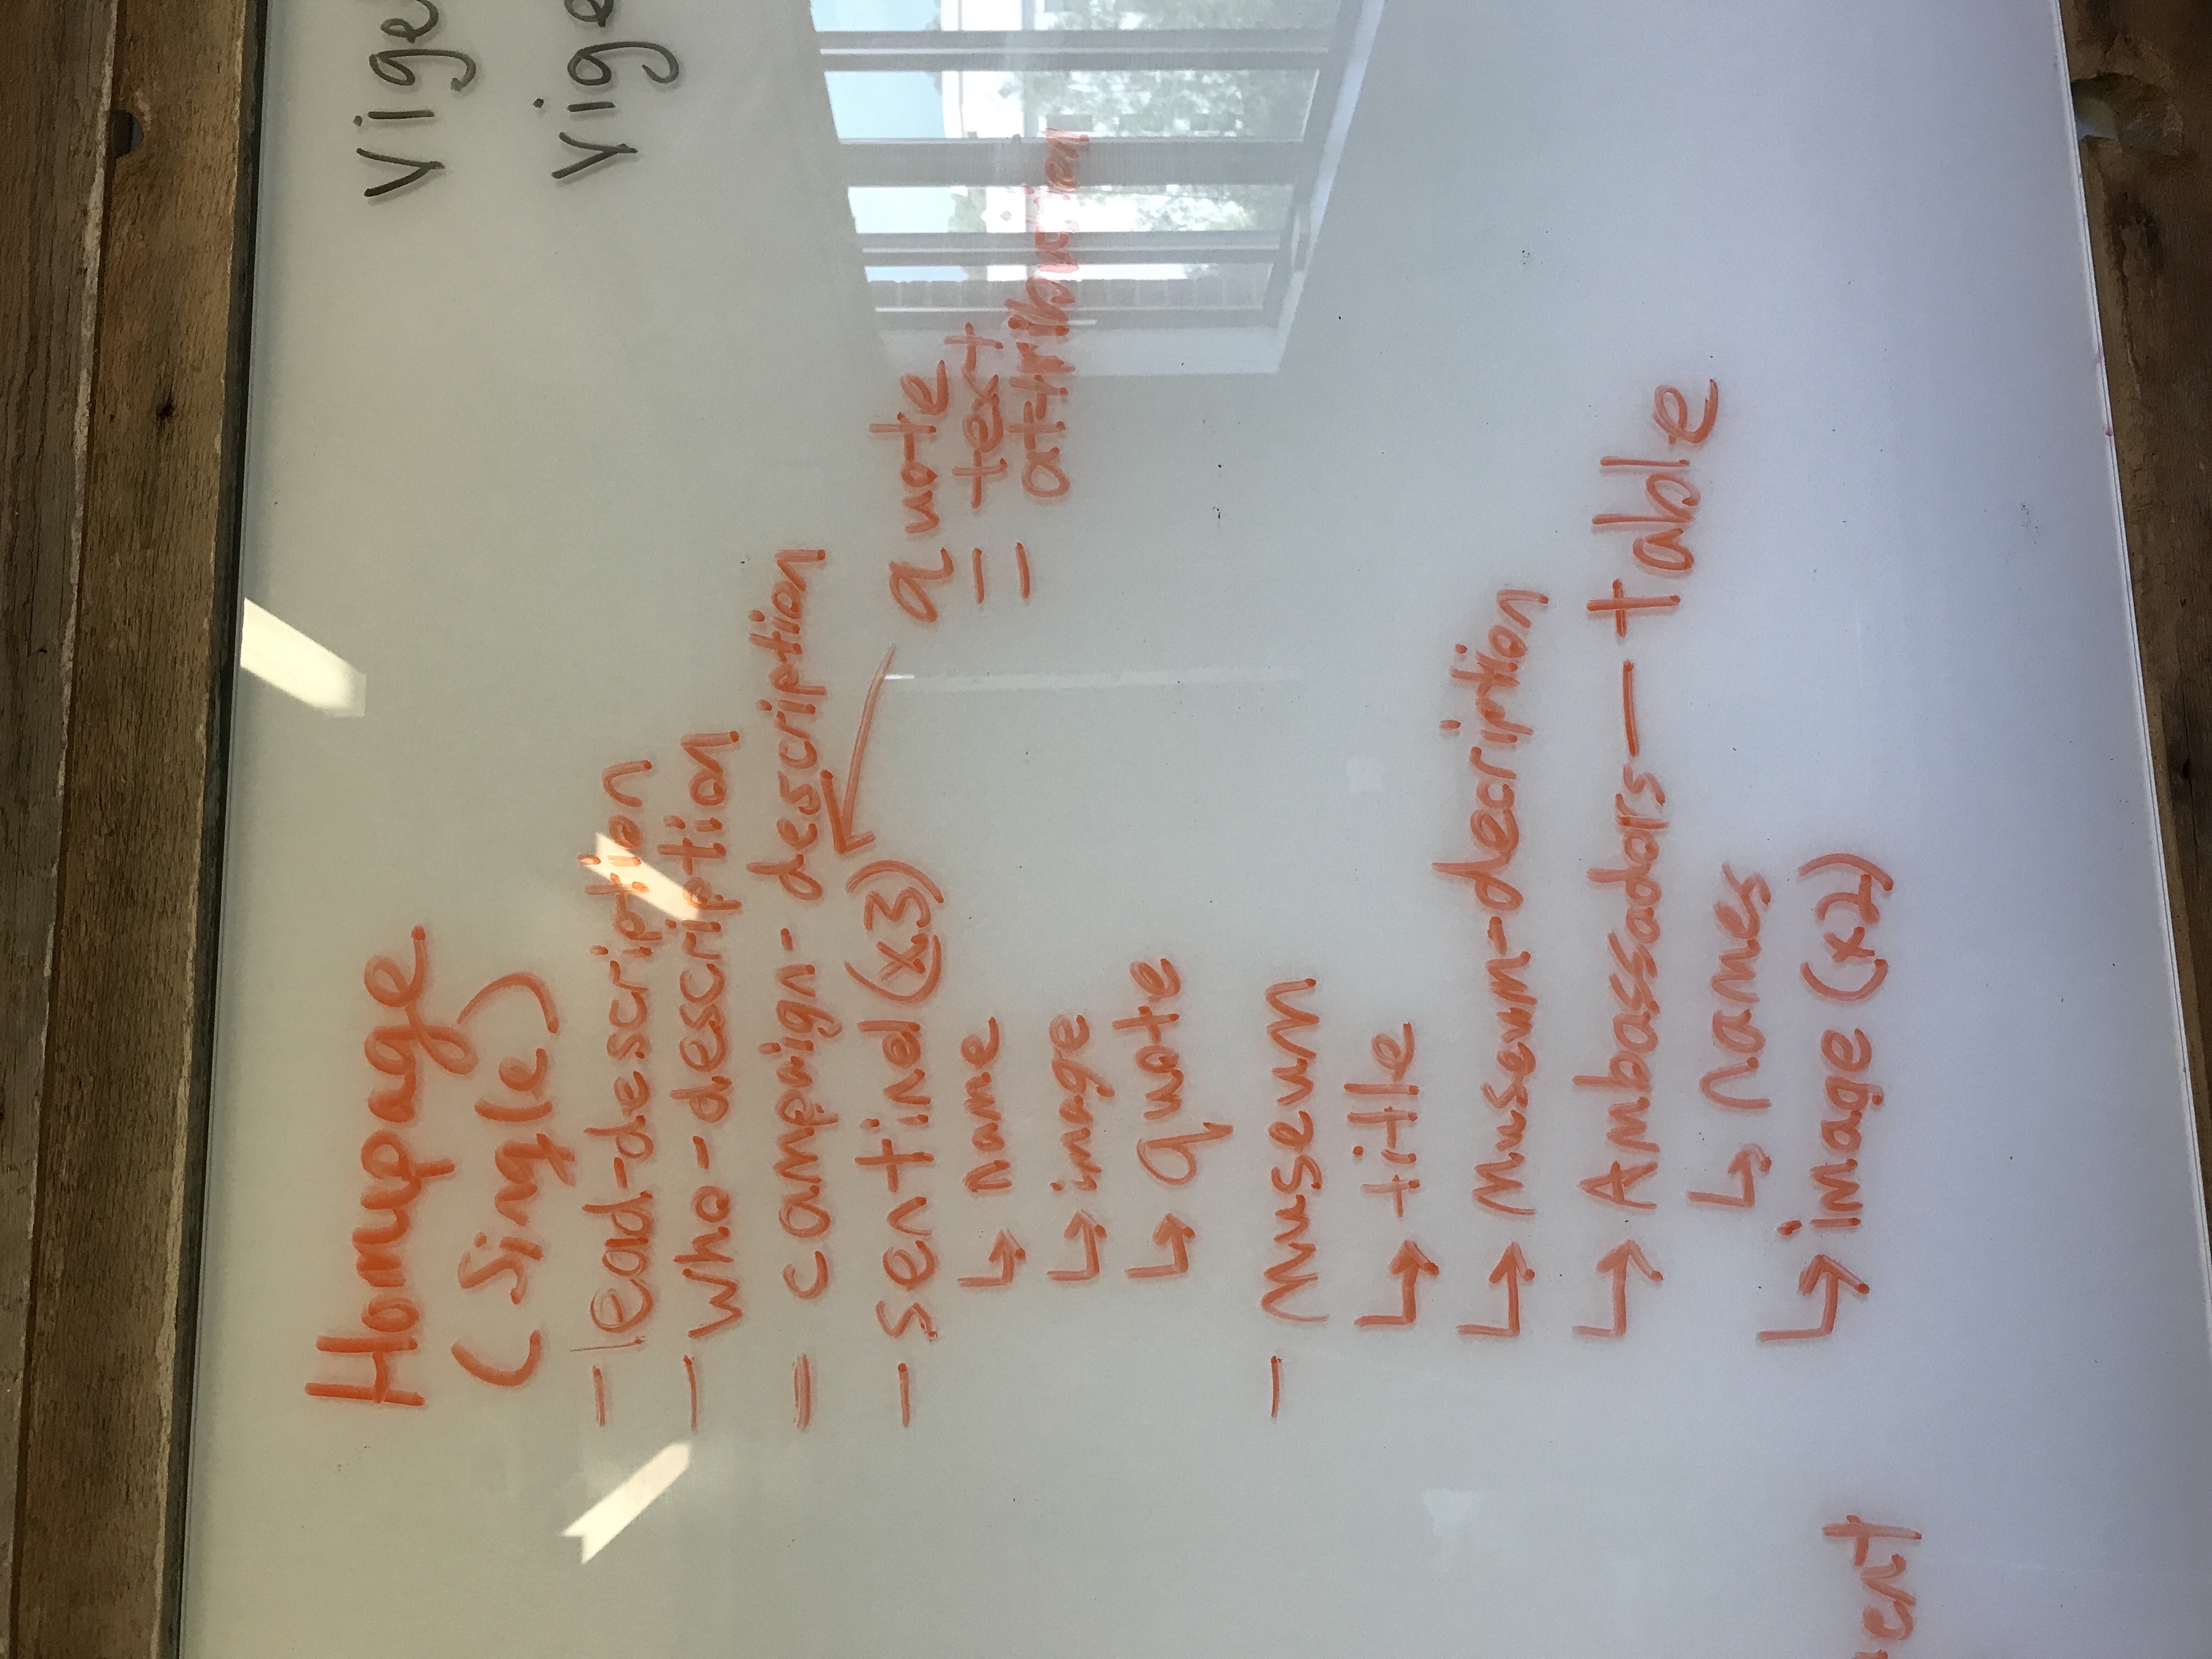 Homepage
(Single)
- lead-description
- who-description
- campaign-description
- sentinel (x3)
↳ name
↳ image
↳ quote
quote
- text
- attribution
- museum
↳ title
↳ museum-decription
↳ Ambassadors — table
↳ names
↳ image (x2)
Vige
Vige
ent